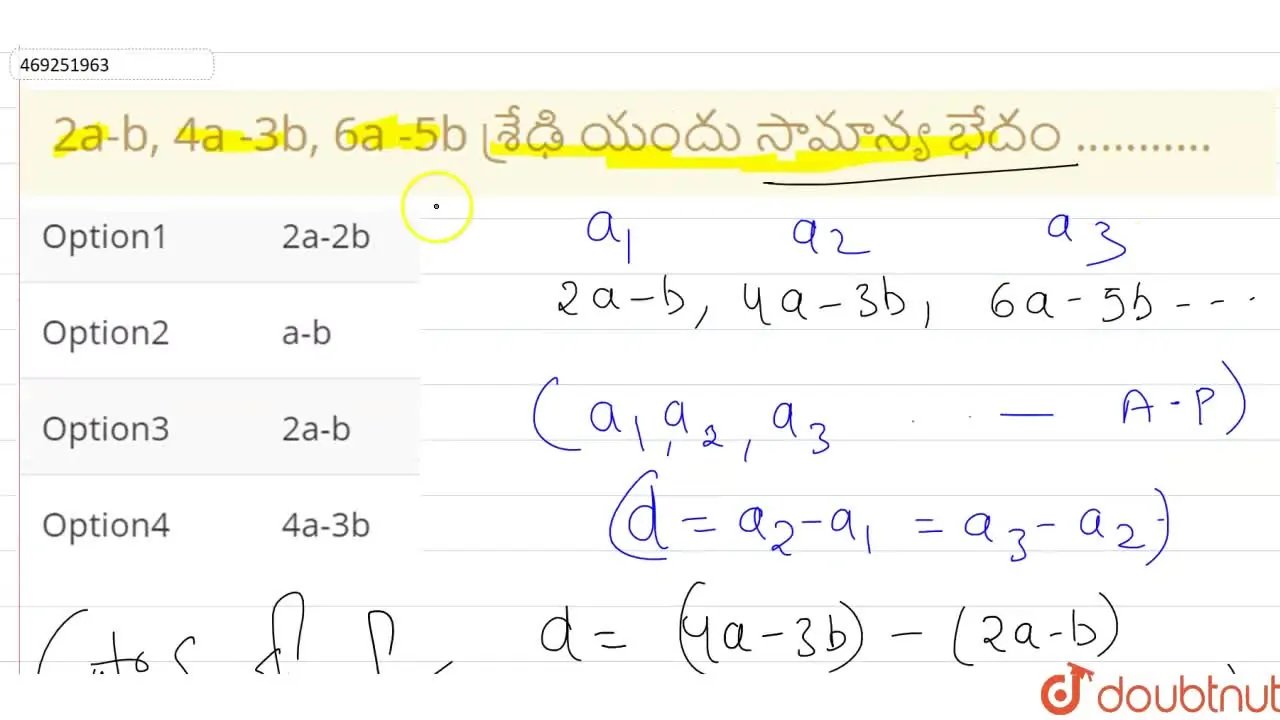 469251963
2a-b, 4a -3b, 6a -5b శ్రేఢి యందు సామాన్య భేదం ...........
Option1 2a-2b
Option2 a-b
Option3 2a-b
Option4 4a-3b
a1 a2 a3
2a-b, 4a-3b, 6a-5b ----
(a1, a2, a3 — A.P)
(d = a2-a1 = a3-a2)
d = (4a-3b) - (2a-b)
doubtnut